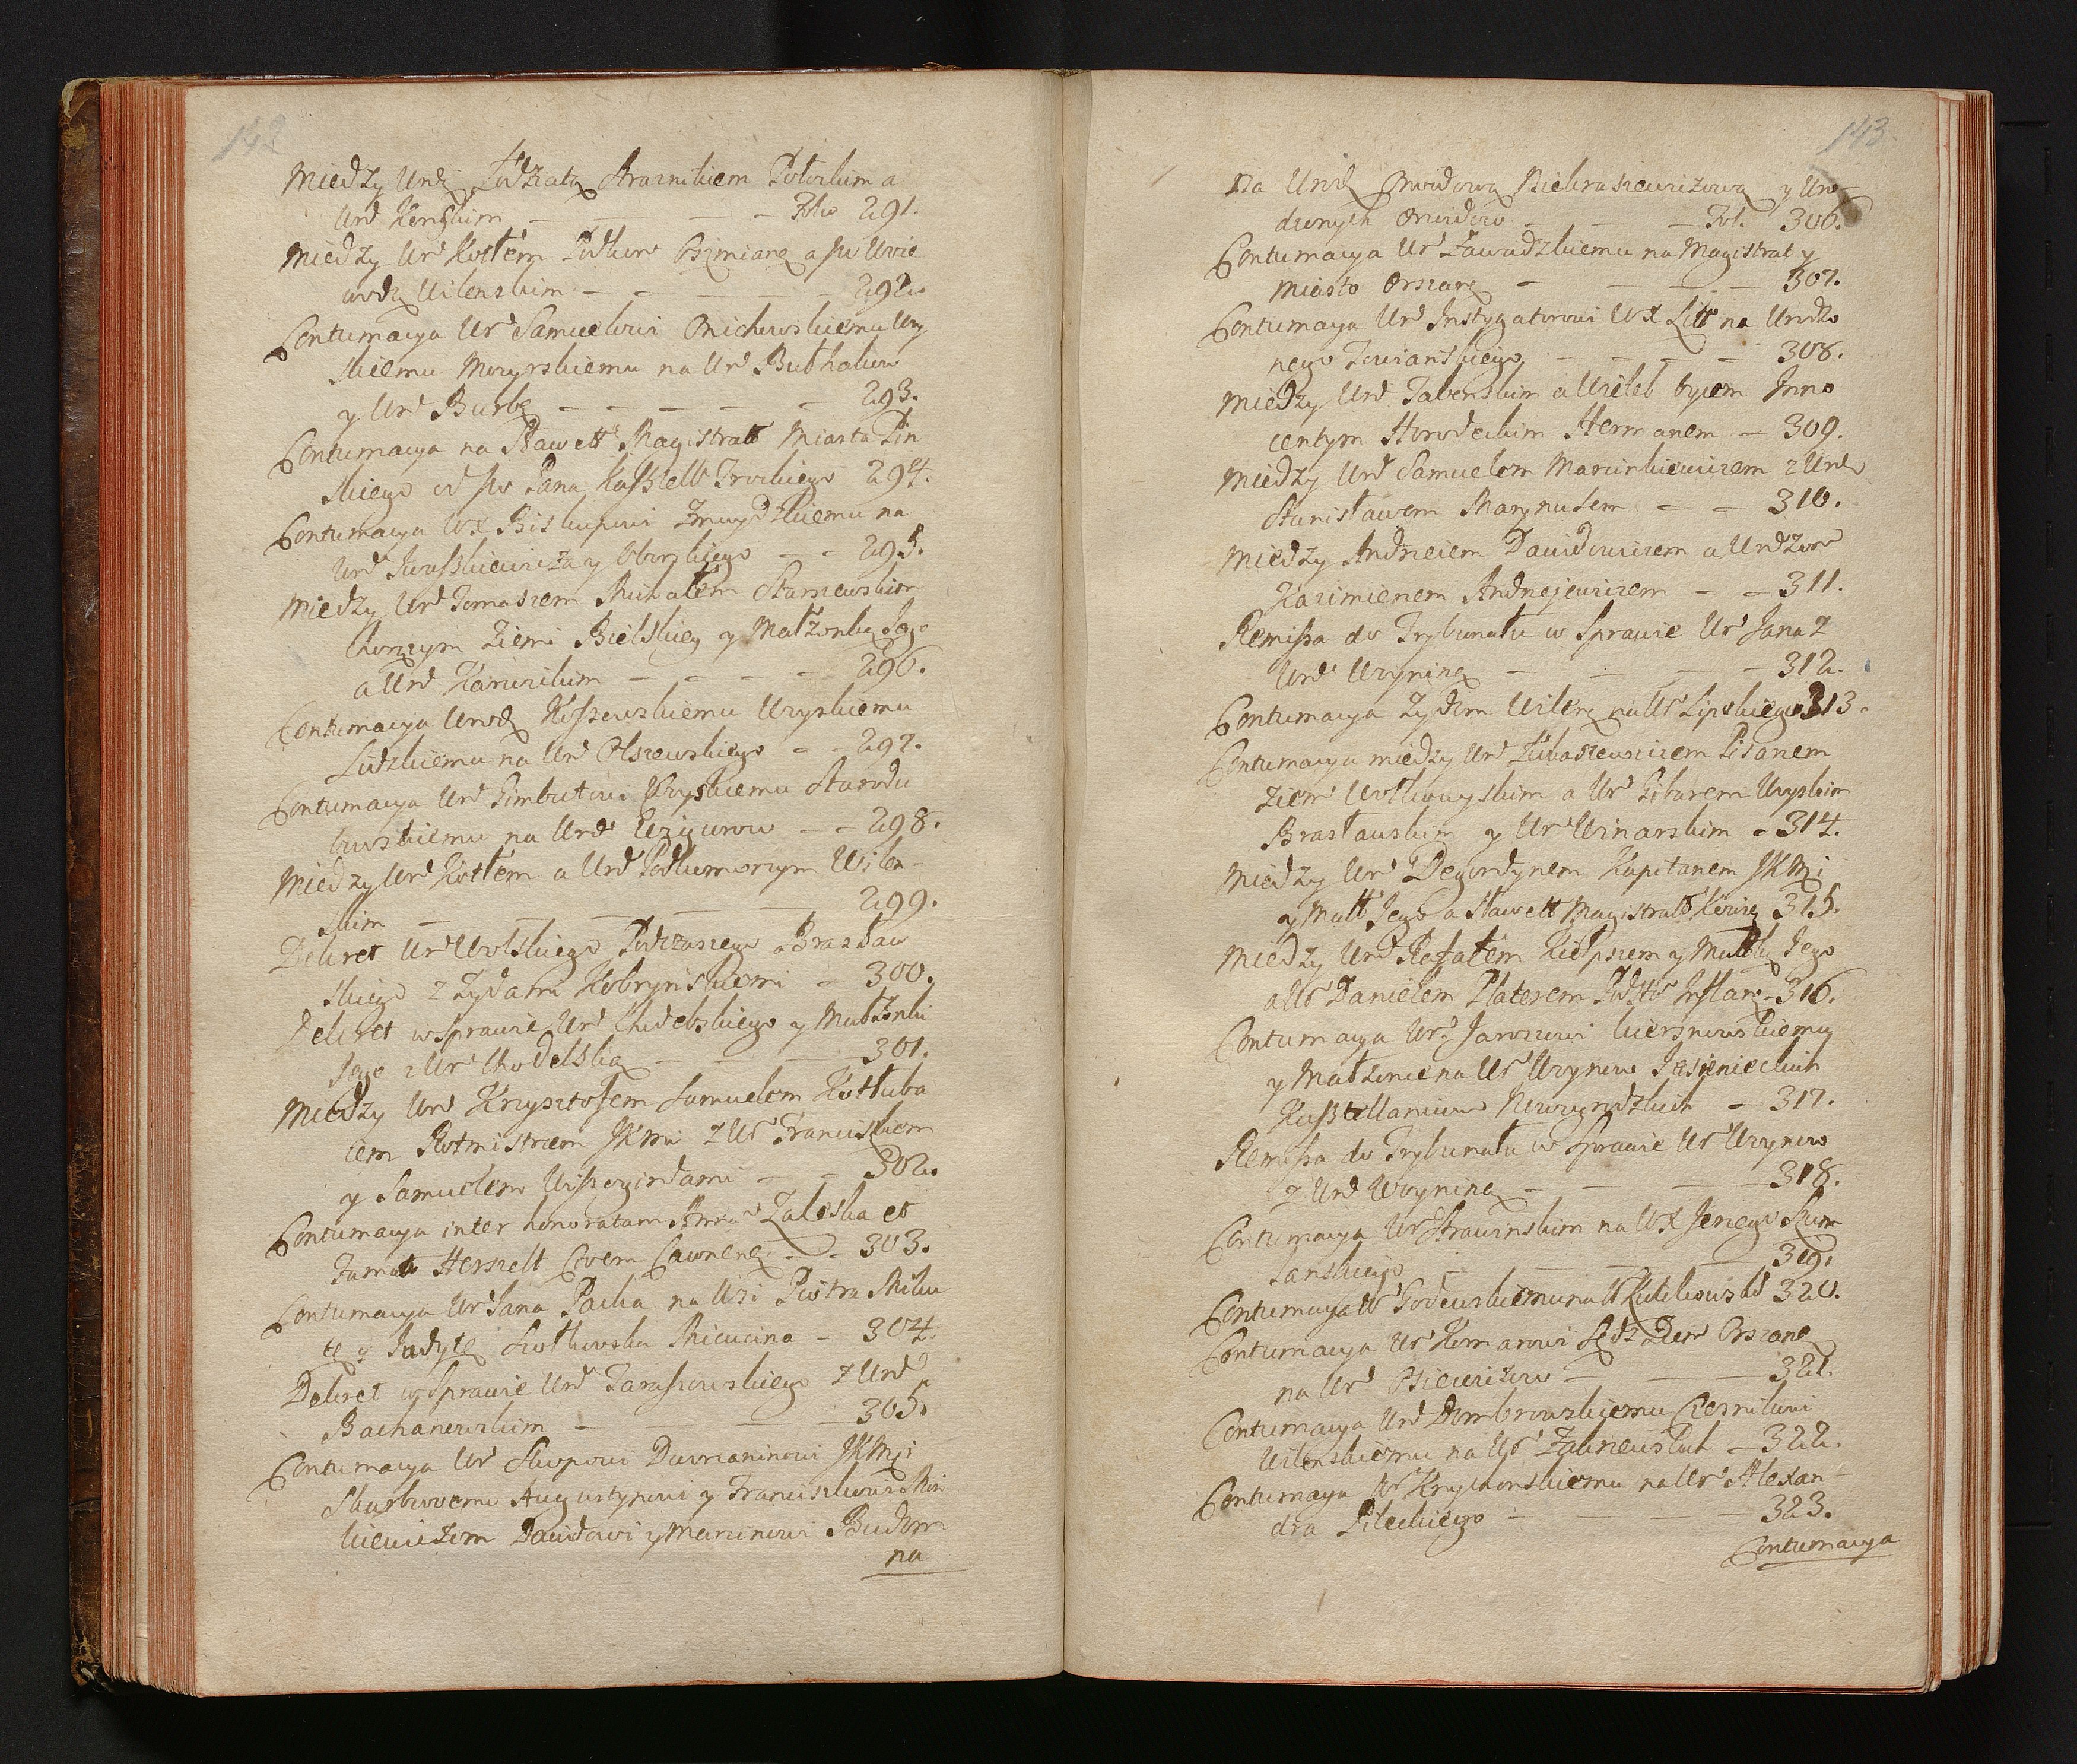 142
Między Urd Łodziatą Straznikiem Połockim a
Urd Konskim — — — Fol 291.
Między Ur Kottem Podkom Oszmianą a JW Woie
wodą Wilenskim — — — 292.
Contumacya Ur Samuelowi Onichowskiemu Woy
skiemu Mozyrskiemu na Urd Buthakow
y Urd Burbę — — — — 293.
Contumacya na Sławett Magistratt Miasta Pin
skiego od JW Pana Kasztell Trockiego 294.
Contumacya WX Biskupowi Zmuydzkiemu na
Urd Juraszkiewicza y Oborskiego — — 295.
Między Urd Tomaszem Michałem Starzewskim
Chorązym Ziemi Bielskiey y Małzonką Jego
a Urd Karwickim — — — 296.
Contumacya Urod Koszewskiemu Woyskiemu
Lidzkiemu na Urd Olszewskiego — — 297.
Contumacya Urd Gimbutowi Woyskiemu Starodu
bowskiemu na Urd Wzigurow — — 298.
Między Urd Kottem a Urd Podkomorzym Wilen-
skim — — — — 299.
Dekret Ur Wolskiego Podczaszego Brasław
skiego z Zydami Kobrynskiemi — 300.
Dekret w Sprawie Urd Chodelskiego y Małzonki
Jego z Ur Chodelską — — — 301.
Między Urd Krzysztofem Samuelem Kottuba
iem Rotmistrzem JKMci z Ur Franciszkiem
y Samuelem Wiszogirdami — — 302.
Contumacya inter honoratam Annam Zaleska et
Famatt Herszelt Civem Caunenę — — 303.
Contumacya Ur Jana Packa na Urd Piotra Miku
tę y Judytę Sutkowska Micucina — 304.
Dekret w Sprawie Urd Taraszowskiego z Urd
Bachanowskim — — — 305.
Contumacya Ur Skopowi Dworzaninowi JKMci
Skarbowemu Augustynowi y Franciszkowi Min
kiewiczom Dawidowi y Marcinowi Budom
na
143.
na Urod Onwidową Mickraszewiczową y Uro-
dzonych Onwidow — — — Fol. 306.
Contumacya Ur Zawadzkiemu na Magistrat y
Miasto Orszanę — — — 307.
Contumacya Urd Instygatorowi WX Litt na Urodzo
nego Towianskiego — — — — 308.
Między Urd Tabenskim a Wieleb Oycem Inno
centym Horodeckim Hermanem — 309.
Między Urd Samuelem Marcinkiewiczem z Urd
Stanisławem Marynusem — — 310.
Między Andrzeiem Dawidowiczem a Urdzon
Kazimierzem Andrzejewiczem — — 311.
Remissa do Trybunału w Sprawie Ur Jana z
Urd Woyniną — — — 312.
Contumacya Zydom Wilenę na Ur Lipskiego 313.
Contumacya między Urd Łukaszewiczem Pisarzem
Ziem Wołkowyskim a Ur Pisarem Woyskim
Brasławskim y Ur Winarskim — 314.
Między Ur Degordynem Kapitanem JKMci
y Małż Jego a Sławett Magistratt Kowię 315.
Między Urd Rafałem Kiełpszem y Małżką Jego
a Ur Danielem Platerem Podsto Inflanę — 316.
Contumacya Urd Jaroszowi Kiersnowskiemu
y Małzonce na Ur Woynow Jasienieckich
Kasztellanicow Nowogrodzkich — 317.
Remissa do Trybunału w Sprawie Ur Woynow
z Urd Woyniną — — — 318.
Contumacya Ur Strawinskim na WX Jerzego Szum
lanskiego — — — 319.
Contumacya Ur Todewskiemu na Ur Kulikowskd 320.
Contumacya Ur Komarowi Sędz Ziem Orszanę
na Urd Osiewiczow — — — 321.
Contumacya Urd Dombrowskiemu Czesnikowi
Wilenskiemu na Ur Zabrzeuskich — 322.
Contumacya Ur Krychonskiemu na Ur Alexan-
dra Pileckiego — — — 323.
Contumacya